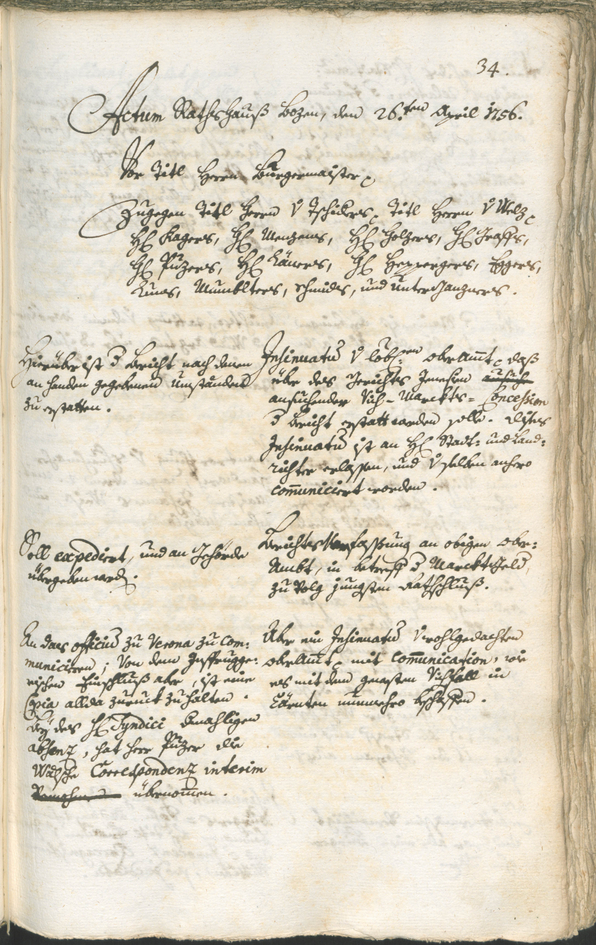 34.
Actum Rathshauß Bozen, den 26.ten April 1756.
Vor Titl Herrn Burgermaister
Zugegen Titl Herrn v Tschiders, Titl Herrn v Melz,
H: Kagers, H: Menzens, H: Holzers, H: Graffs,
H: Puzers, H: H: Heppergers, Eggers,
und
Hierüber ist d Bericht nach denen
an handen gegebenen Umständen
zu erstatten.
Insinuatum v löbl:en oberAmt, daß
über des Gerichts Jenesien
ansuchender Vich-Marckts-Concession
d Bericht erstatt werden solle. dises
Insinuatum ist an H: Stadt- und Land-
richter erlassen, und v selben anhero
communiciert worden.
Soll expediert, und an Gehörde
übergeben werd:
Berichts Verfassung an obigen ober-
Ambt, in betreff d Marcktsfeld,
zu volg jungsten Rathschluß.
An das officium zu Verona zu com-
municieren; Von dem
Einschluß aber, ist eine
Copia allda zuruck zu halten.
bey des H: Syndici damahligen
absenz, hat herr Puzer die
Wälsche Correspondenz interim
übernomen.
Über ein Insinuatum v wohlgedachten
oberAmt, mit communication, wie
es mit dem Vichfall in
Kärnten nunmehro beschaffen.